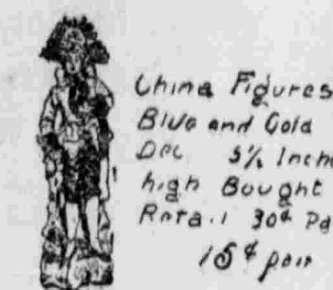 China Figures
Blue and Gold
Dec 5½ Inche
high Bought
Retail 30¢ Pa
15¢ pair